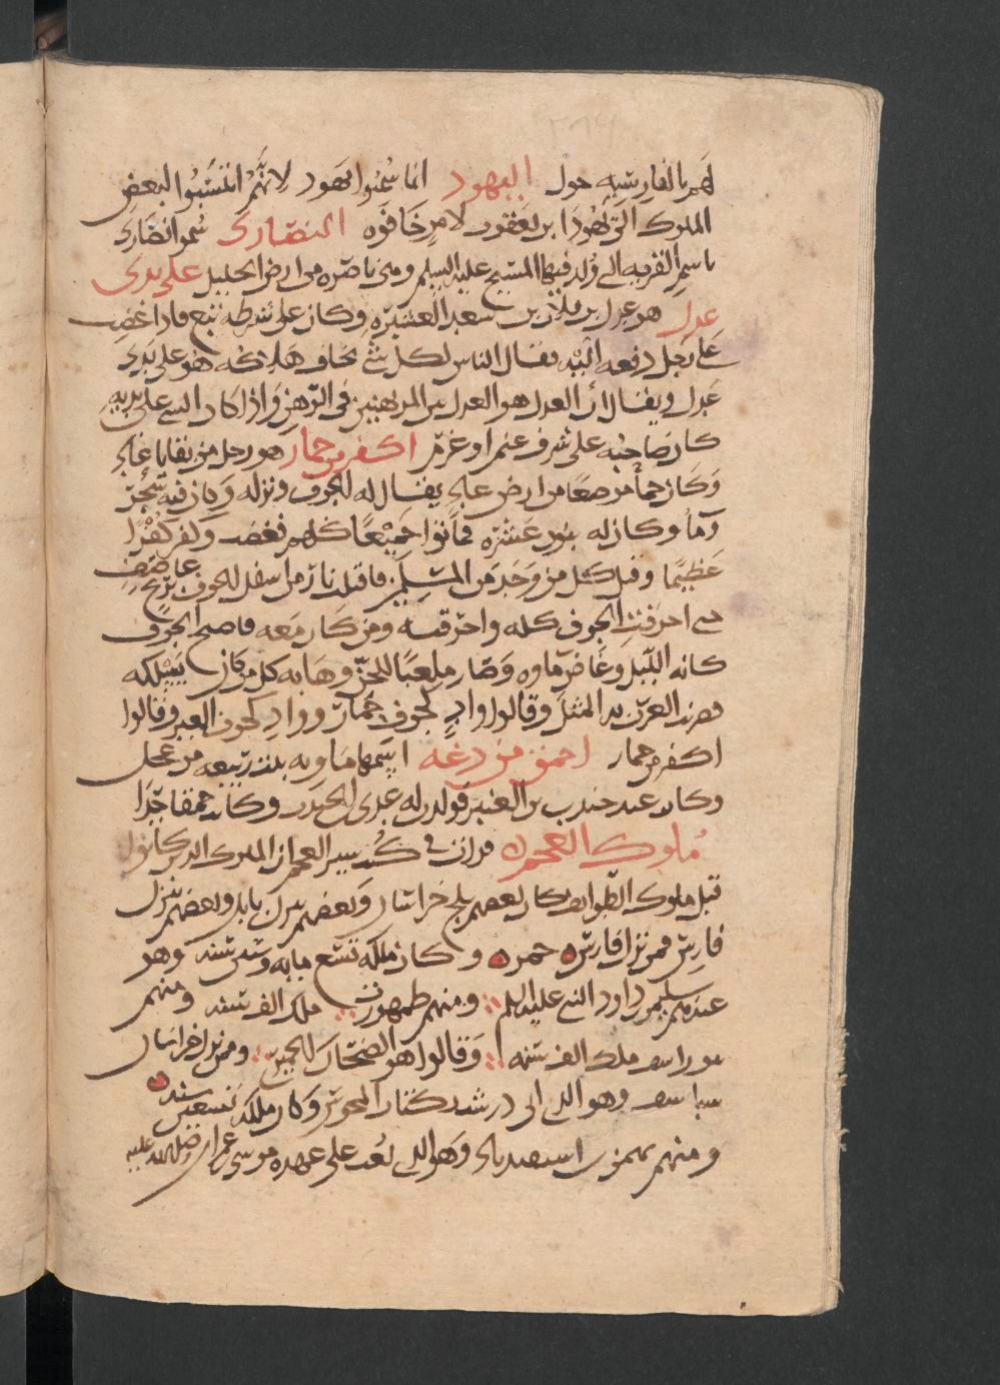 لهم بالفارسيه حول اليهود انما سُمّوا يهود لانهم انتسبوا لبعض
الملوك الى يهوذا بن يعقوب لامرٍ خافوه النصارى سُموا نصارى
باسم القريه التى وُلد فيها المسيح عليه السلم وهى ناصره من ارض الجليل على يدى
عدل هو عدل بن فلان بن سعد العشيره وكان على شرطه تبّع فاذا غضب
على رجل دفعه اليه فقال الناس لكل شى يخاف هلاكه هو على يدى
عدل ويقال ان العدل هو العدل بين المرتهنين فى الرهن واذا كان الشى على يديه
كان صاحبه على شرف غنم او غرم اكفر من حمار هو رجل من بقايا عاد
وكان حمار موضعًا من ارض عاد يقال له الجوف ونزله وكان فيه شجر
وماء وكان له بنون عشره فماتوا جميعًا كلهم فغضب وكفر كفرًا
عظيمًا وقتل كل من وجد من المسلمين فاقبلت نار من اسفل الجوف بريح عاصف
حتى احرقت الجوف كله واحرقته ومن كان معه فاصبح الجوف
كانه الليل وغاض ماوه وصار ملعبًا للجن وهابه كل من كان يسلكه
فضربت العرب به المثل وقالوا وادٍ كجوف حمار ووادٍ كجوف العير وقالوا
اكفر من حمار احمق من دغه اسمها ماويه بنت ربيعه من عجل
وكانت عند جندب بن العنبر فولدت له عدى بن جندب وكانت حمقا جدا
مُلوك العجم قرات فى كتب سير العجم ان الملوك الذين كانوا
قبل ملوك الطوايف كان بعضهم ببلخ خراسان وبعضهم ينزل بابل وبعضهم ينزل
فارس فممن نزل فارس جم وكان ملكه تسع مايه وستين سنه وهو
عندهم سليمن بن داود النبى عليه السلم ومنهم طمهورت ملك الف سنه ومنهم
بيوراسف ملك الف سنه وقالوا هو الضحاك الحميرى وممن نزل خراسان
بستاسف وهو الذى اتى زردشت بكتاب المجوس وكان ملكه تسعين سنه
ومنهم بهمن اسفنديار وهو الذى بُعث على عهده موسى بن عمران صلى الله عليه